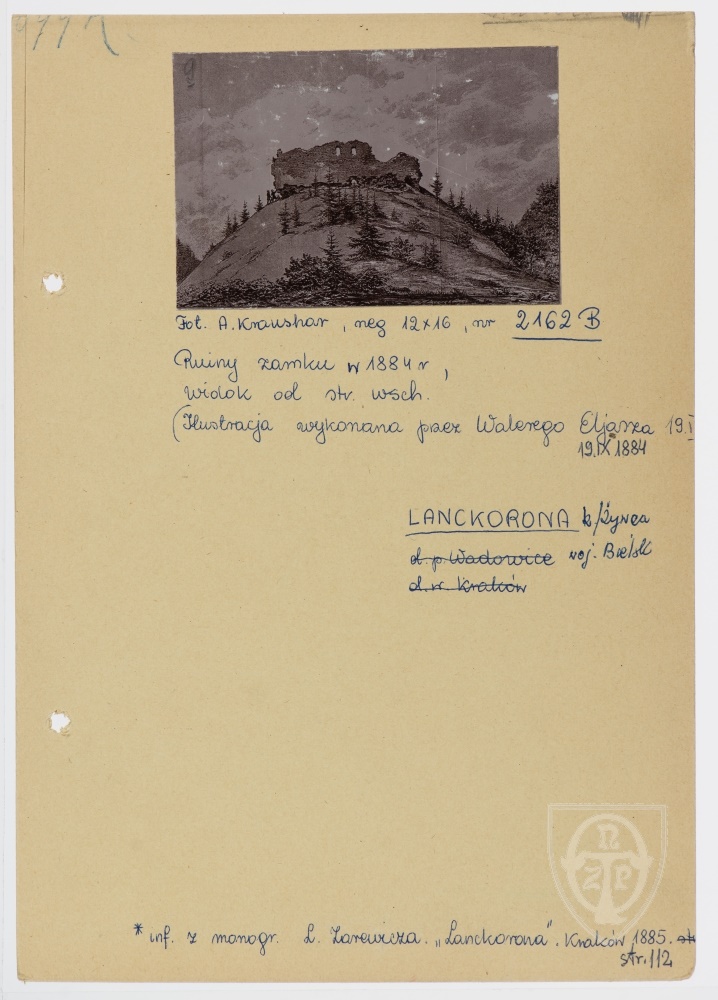 Fot. A. Kraushar, neg 12x16, nr 2162 B
Ruiny zamku w 1884 r,
widok od str. wsch.
(Ilustracja wykonana przez Walerego Eljasza 19.I
19.IX 1884
LANCKORONA k/Żywca
d. p. Wadowice woj. Bielsk
d. w. Kraków
N
T
Z P
* inf. z monogr. L. Zarewicza. „Lanckorona". Kraków, 1885.
str. 112